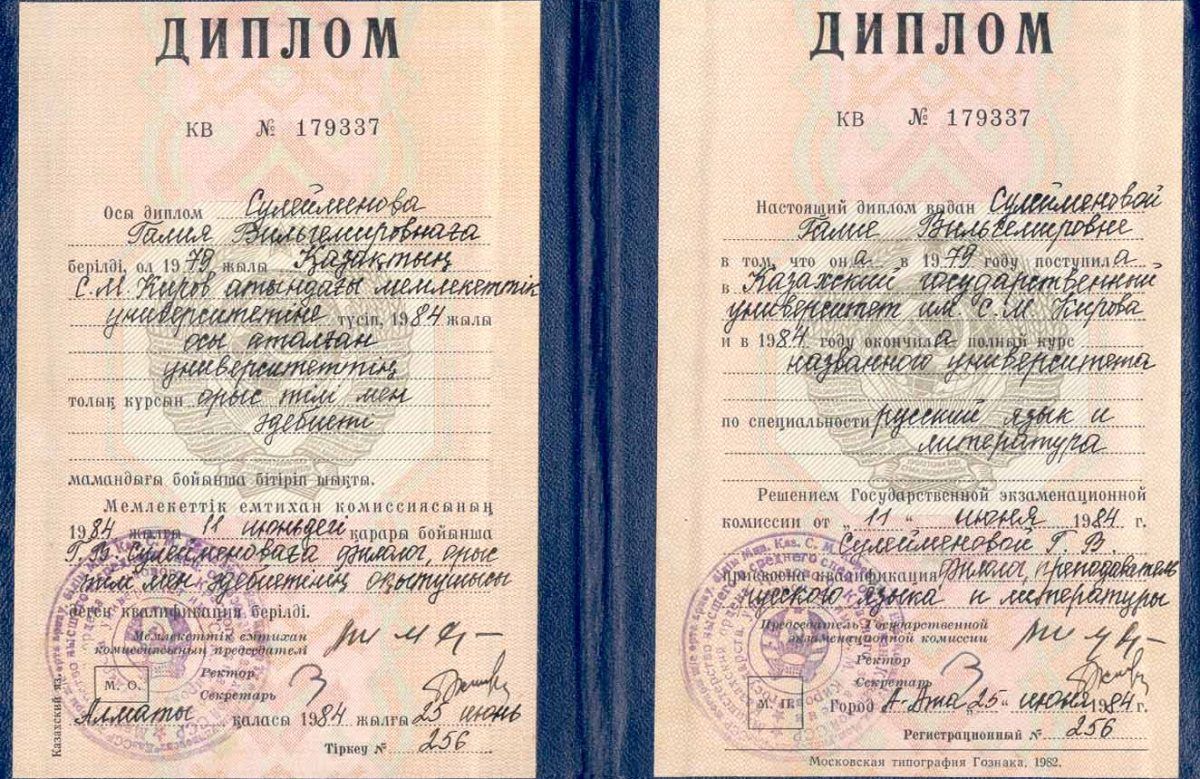 ДИПЛОМ
КВ № 179337
Осы диплом Сулейменова
Галия Вильгемировнаға
берілді, ол 1979 жылы Қазақтың
С.М. Киров атындағы мемлекеттік
университетіне түсіп, 1984 жылы
осы аталған
университеттің
толық курсын орыс тілі мен
әдебиеті
мамандығы бойынша бітіріп шықты.
Мемлекеттік емтихан комиссиясының
1984 жылғы 11 июньдегі қарары бойынша
Г.В. Сулейменоваға филолог, орыс
тілі мен әдебиетінің оқытушысы
деген квалификация берілді.
Мемлекеттік емтихан
комиссиясының председателі
Ректор
М. О.
Секретарь
Алматы қаласы 1984 жылғы 25 июнь
Тіркеу № 256
Казахский яз.
ДИПЛОМ
КВ № 179337
Настоящий диплом выдан Сулейменовой
Галие Вильгемировне
в том, что она в 1979 году поступила
в Казахский государственный
университет им. С. М. Кирова
и в 1984 году окончила полный курс
названного университета
по специальности русский язык и
литература
Решением Государственной экзаменационной
комиссии от „11“ июня 1984 г.
Сулейменовой Г. В.
присвоена квалификация Филолог, преподаватель
русского языка и литературы
Председатель Государственной
экзаменационной комиссии
Ректор
Секретарь
М. П.
Город А-Ата „25“ июня 1984 г.
Регистрационный № 256
Московская типография Гознака, 1982.